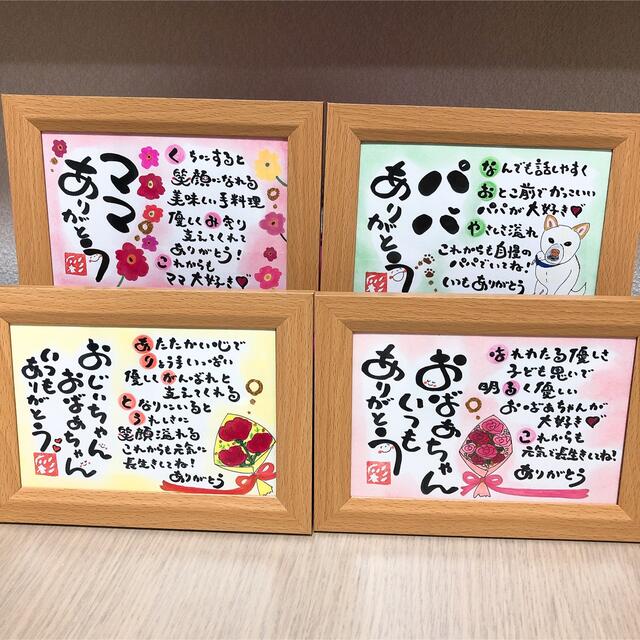 ママ
ありがとう
くちにすると
笑顔になれる
美味しい手料理
優しくみ守り
支えてくれて
ありがとう!
これからも
ママ大好き
パパ
ありがとう
なんでも話しやすく
おとこ前でかっこいい
パパが大好き
やさしさ溢れ
これからも自慢の
パパでいてね!
いつもありがとう
おじいちゃん
おばあちゃん
いつも
ありがとう
あたたかい心で
りょう手いっぱい
優しくがんばれと
支えてくれる
となりにいると
うれしさに
笑顔溢れる
これからも元気に
長生きしてね!
ありがとう
おばあちゃん
いつも
ありがとう
はれわたる優しさ
子ども思いで
明るく優しい
おばあちゃんが
大好き
これからも
元気で長生きしてね!
ありがとう